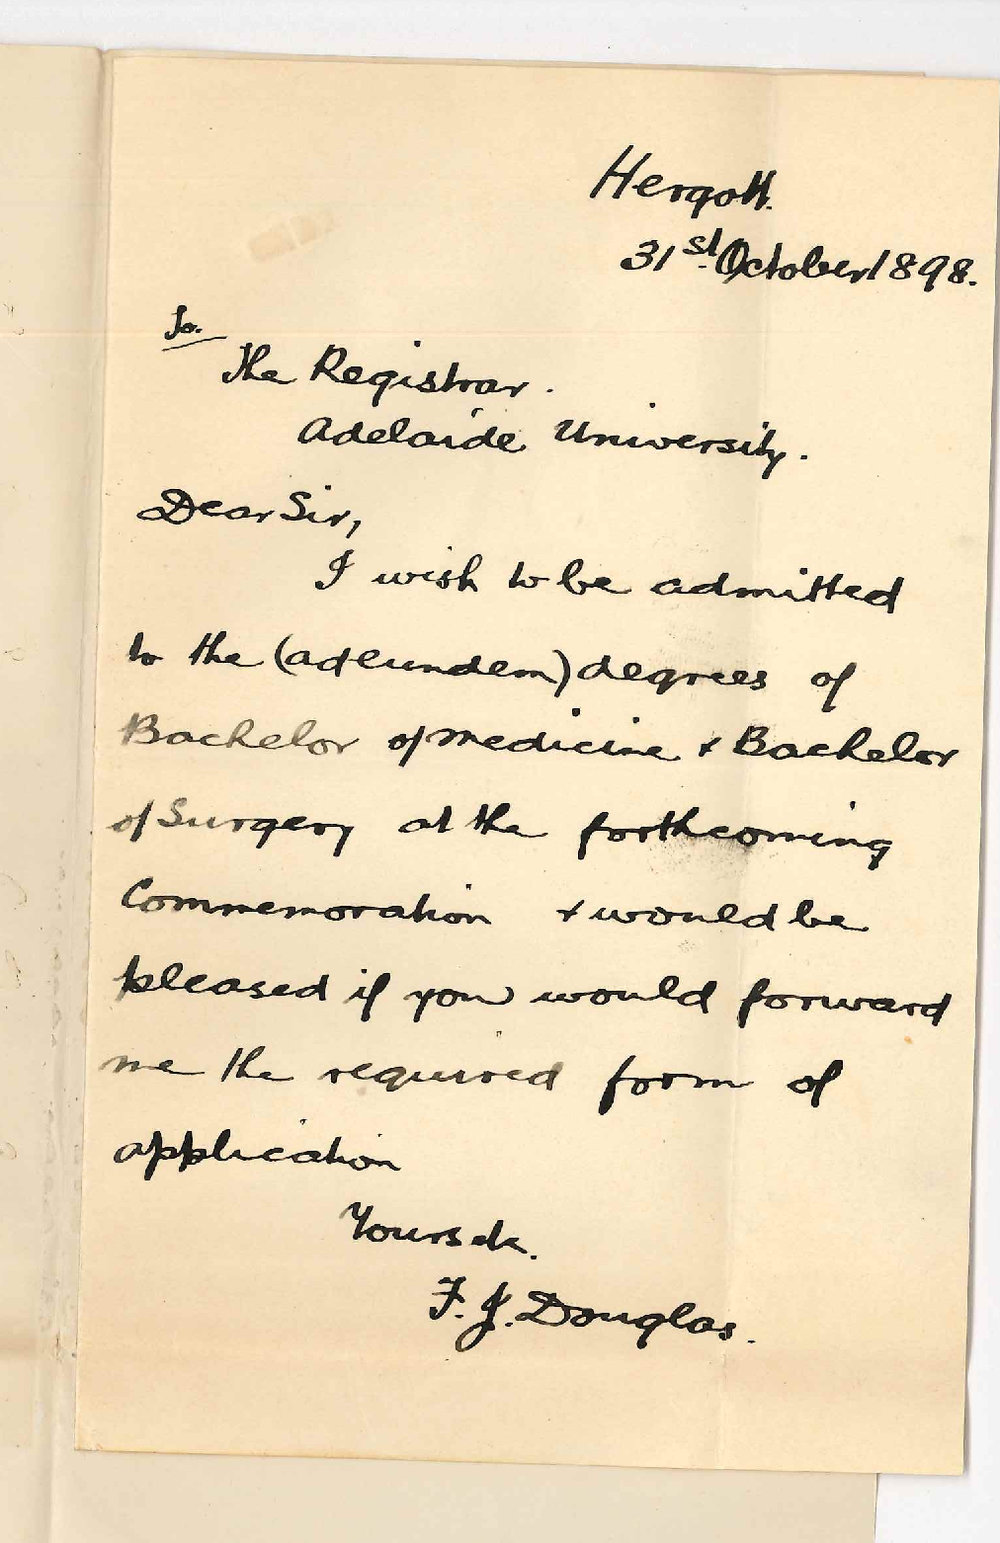 Hergott.
31st. October 1898.
To.
The Registrar.
Adelaide University.
Dear Sir,
I wish to be admitted
to the (adeundem) degrees of
Bachelor of medicine & Bachelor
of Surgery at the forthcoming
Commemoration & would be
pleased if you would forward
me the required form of
application
Yours etc.
F. J. Douglas.